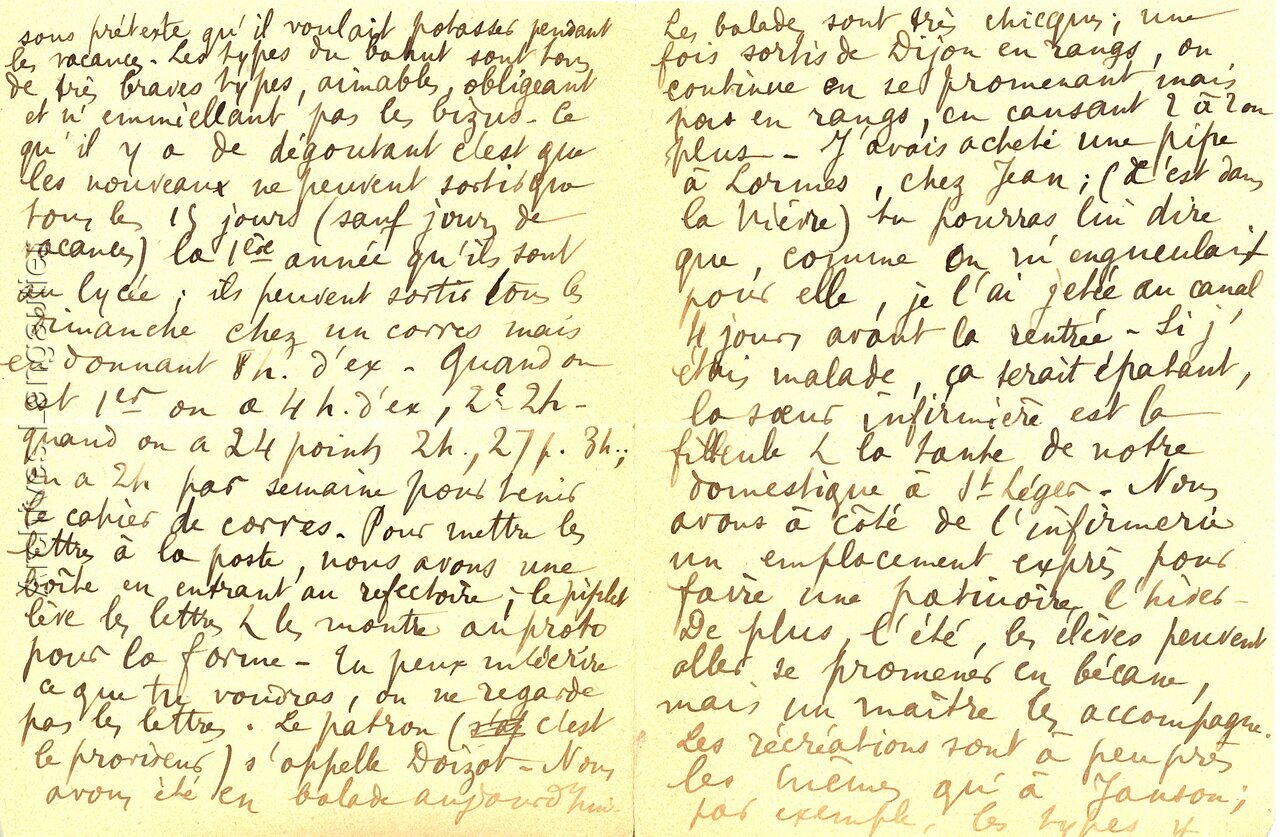 sous prétexte qu'il voulait potasser pendant
les vacances. Les types du bahut sont tous
de très braves types, aimables, obligeant
et n'emmiellant pas les bizus. Ce
qu'il y a de dégoutant c'est que
les nouveaux ne peuvent sortir que
tous les 15 jours (sauf jours de
vacances) la 1ère année qu'ils sont
au lycée ; ils peuvent sortir tous les
dimanche chez un corres mais
en donnant 8h. d'ex - Quand on
est 1er on a 4h. d'ex, 2e 2h -
quand on a 24 points 2h., 27 p. 3h.;
on a 2h par semaine pour tenir
le cahier de corres. Pour mettre les
lettres à la poste, nous avons une
boîte en entrant au refectoire ; le piplet
lève les lettres & les montre au proto
pour la forme - Tu peux m'écrire
ce que tu voudras, on ne regarde
pas les lettres. Le patron (c'est
le proviseur) s'appelle Doizot - Nous
avons été en balade aujourd'hui.
Les balades sont très chicques ; une
fois sortis de Dijon en rangs, on
continue en se promenant mais
pas en rangs, en causant 2 à 2 ou
plus - J'avais acheté une pipe
à Lormes, chez Jean ; (c'est dans
la Nièvre) tu pourras lui dire
que, comme on m'engueulait
pour elle, je l'ai jetée au canal
4 jours avant la rentrée - Si j'
étais malade, ça serait épatant,
la sœur infirmière est la
filleule & la tante de notre
domestique à St Léger - Nous
avons à côté de l'infirmerie
un emplacement exprès pour
faire une patinoire l'hiver -
De plus, l'été, les élèves peuvent
aller se promener en bécane,
mais un maître les accompagne.
Les récréations sont à peu près
les mêmes qu'à Janson ;
par exemple, les types